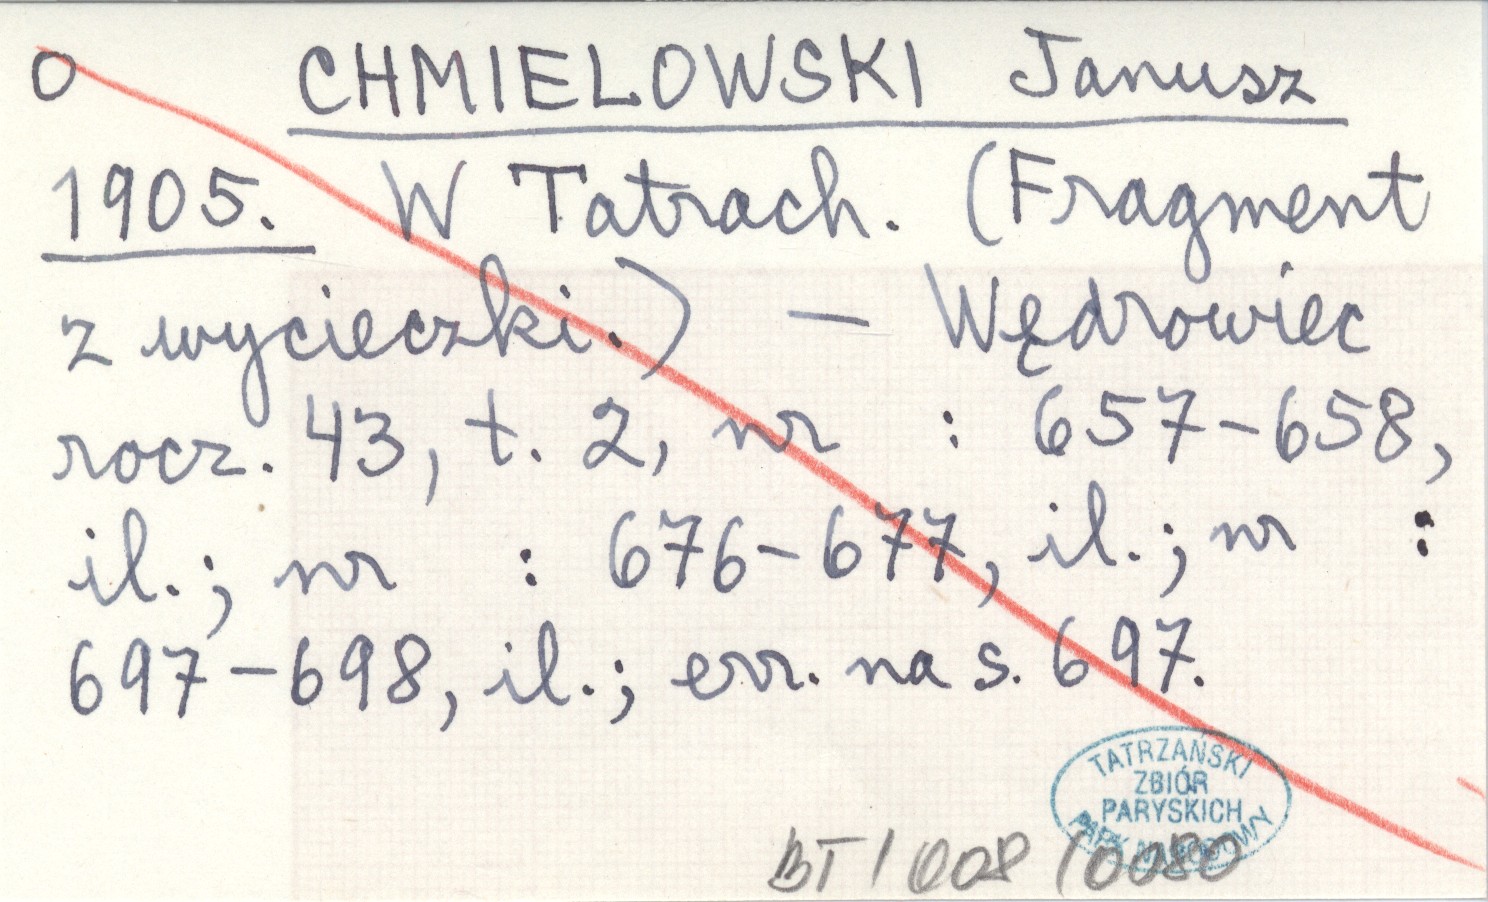 o CHMIELOWSKI Janusz
1905. W Tatrach. (Fragment
z wycieczki.) — Wędrowiec
rocz. 43, t. 2, nr : 657-658,
il.; nr : 676-677, il.; nr :
697-698, il.; err. na s. 697.
TATRZAŃSKI
ZBIÓR
PARYSKICH
PARK NARODOWY
BT/008/0080